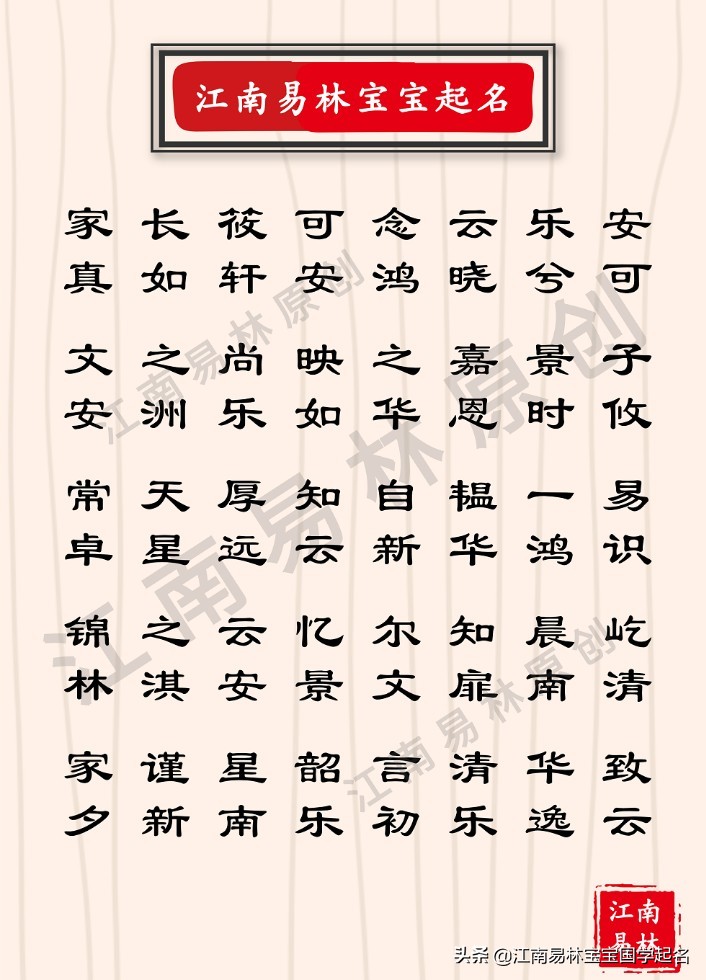 江南易林宝宝起名
家 长 筱 可 念 云 乐 安
真 如 轩 安 鸿 晓 兮 可
文 之 尚 映 之 嘉 景 子
安 洲 乐 如 华 恩 时 攸
常 天 厚 知 自 韫 一 易
卓 星 远 云 新 华 鸿 识
锦 之 云 忆 尔 知 晨 屹
林 淇 安 景 文 雇 南 清
家 谨 星 韶 言 清 华 致
夕 新 南 乐 初 乐 逸 云
江南易林原创
江南易林原创
江南易林原创
江南
易林
头条 @江南易林宝宝国学起名